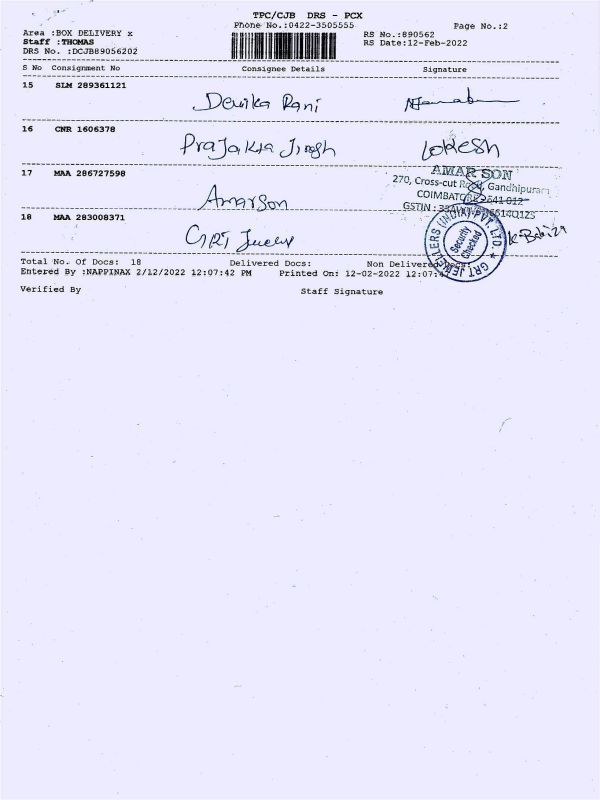 TPC/CJB DRS - PCX
Phone No.:0422-3505555
Page No.:2
Area :BOX DELIVERY x
RS No.:890562
Staff :THOMAS
RS Date:12-Feb-2022
DRS No. :DCJB89056202
S No Consignment No Consignee Details Signature
15 SLM 289361121
Devika Rani
16 CNR 1606378
Prajakta Singh Lokesh
17 MAA 286727598
AMAR SON
270, Cross-cut Road, Gandhipuram
COIMBATORE-641 012
GSTIN :
Amarson
18 MAA 283008371
GRT Jewel
GRT JEWELLERS (INDIA) PVT. LTD.
Security
Checked
Total No. Of Docs: 18 Delivered Docs: Non Delivered Docs:
Entered By :NAPPINAX 2/12/2022 12:07:42 PM Printed On: 12-02-2022 12:07:4
Verified By Staff Signature